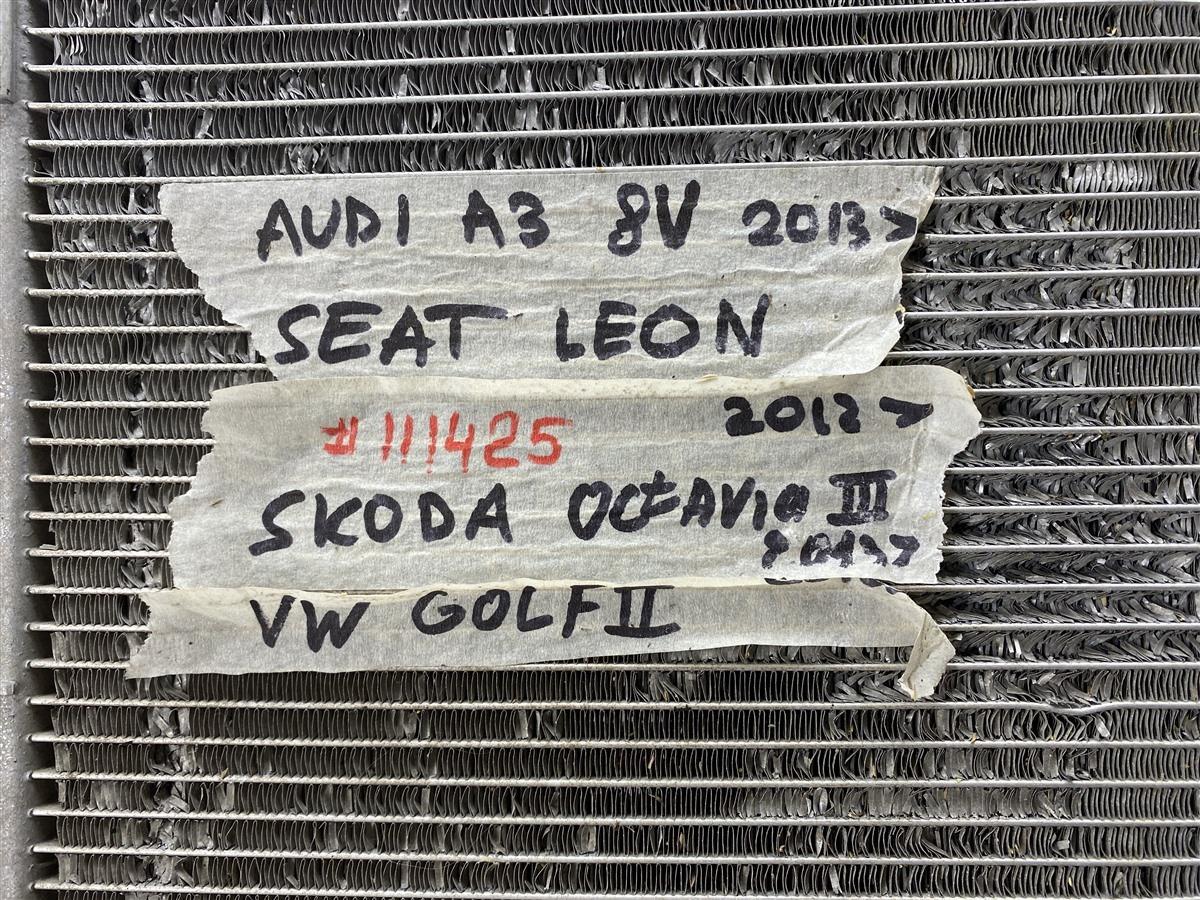 AUDI A3 8V 2013>
SEAT LEON
2012>
#111425
SKODA OCtAViA III
2013>
VW GOLF II